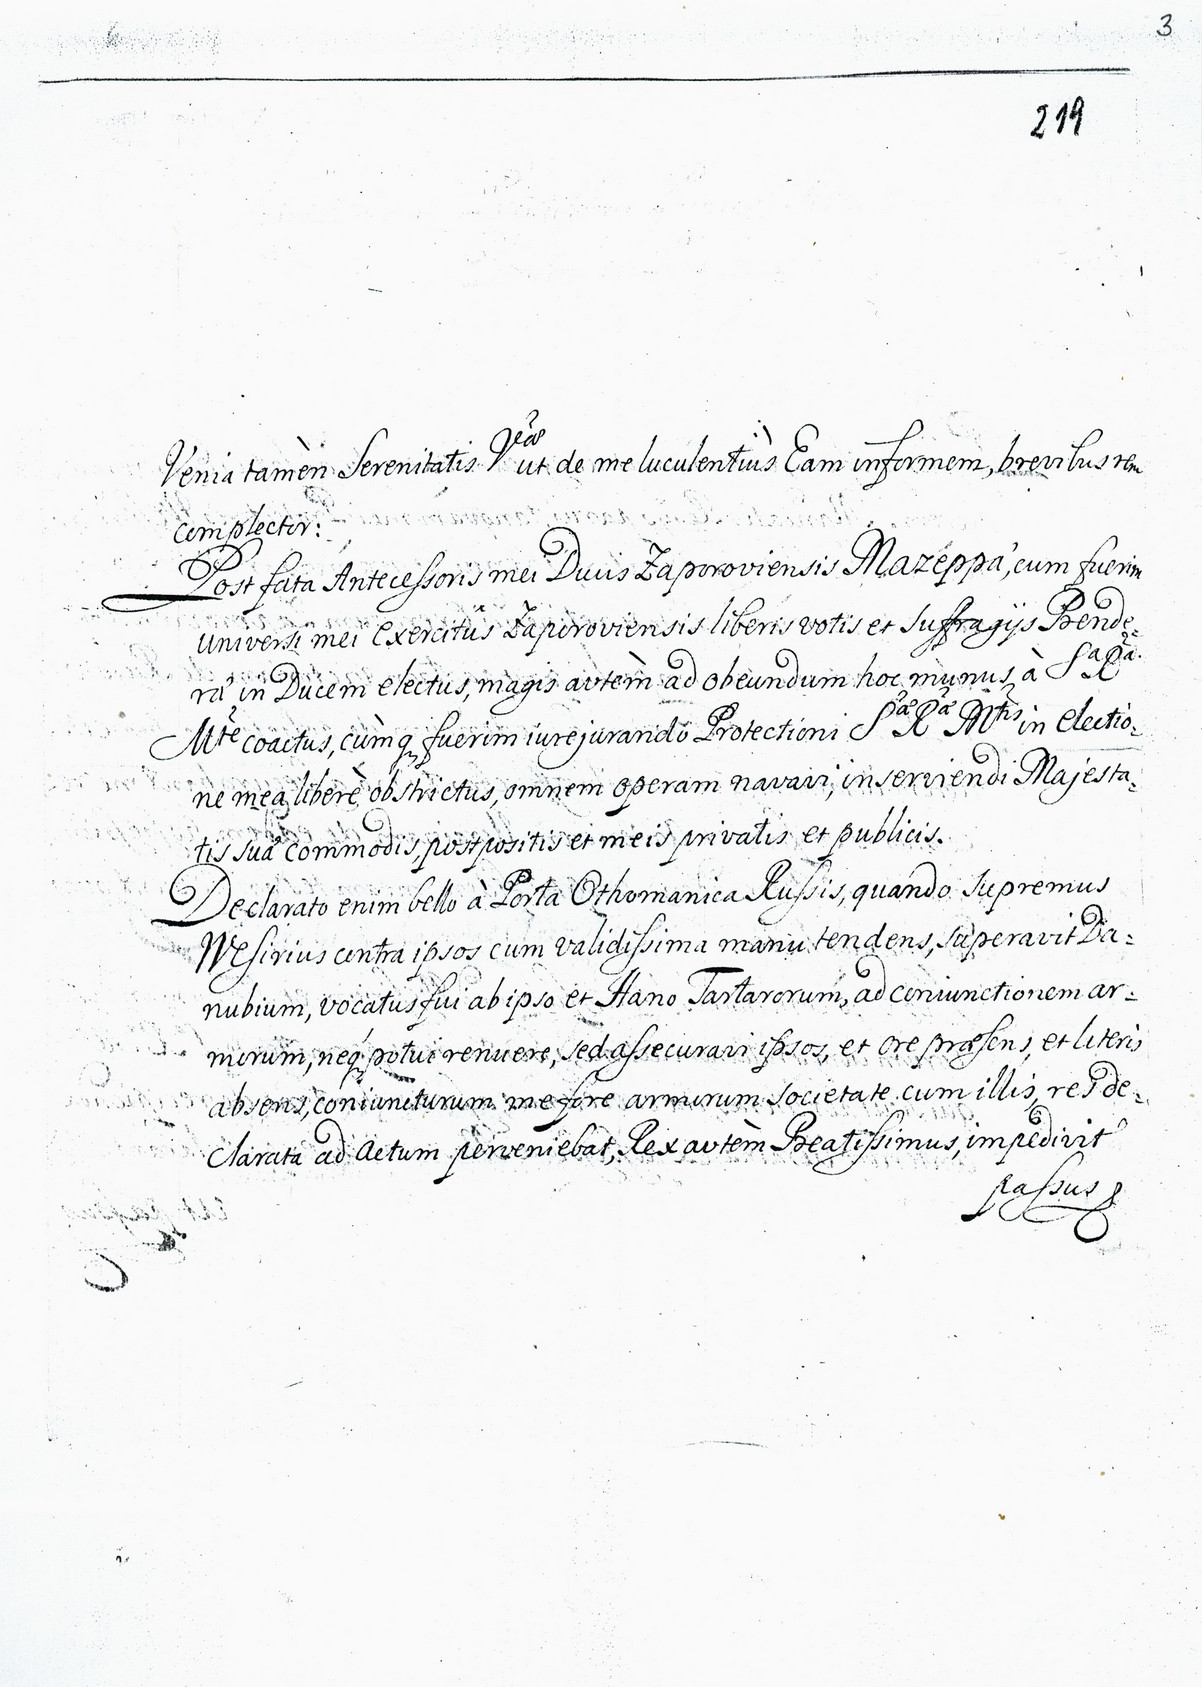 3
219
Venia tamèn Serenitatis Vræ ut de me luculentiùs Eam informem, brevibus rem
complector:
Post fata Antecessoris mei Ducis Zaporoviensis Mazeppa, cum fuerim
universi mei Exercitûs Zaporoviensis liberis votis et suffragijs Bende=
ræ in Ducem electus, magis autèm ad obeundum hoc munus à Sa Ra
Mte coactus, cùmq fuerim iurejurando Protectioni Sæ Ræ Mtis in electio=
ne mea liberè obstrictus, omnem operam navavi, inserviendi Majesta=
tis suæ commodis, postpositis et meis privatis et publicis.
Declarato enim bello à Porta Othomanica Russis, quando Supremus
Wesirius contra ipsos cum validissima manu tendens, superavit Da=
nubium, vocatus fui ab ipso et Hano Tartarorum, ad coniunctionem ar=
morum, neq potui renuere, sed assecuravi ipsos, et ore præsens, et literis
absens, coniuncturum me fore armorum societate cum illis, res de=
clarata ad actum perveniebat, Rex autèm Beatissimus, impedivit
passus